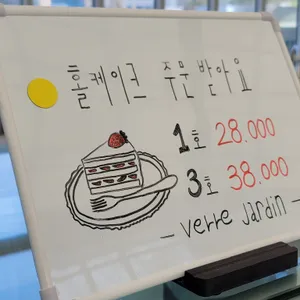 홀케이크 주문 받아요
1호 28.000
3호 38.000
- verre jardin -